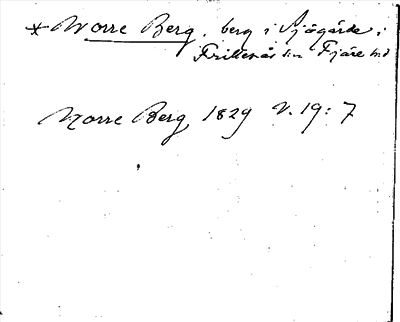 * Norre Berg. berg i Sjögärde i
Frillesås sn Fjäre hd
Norre Berg 1829 V. 19:7